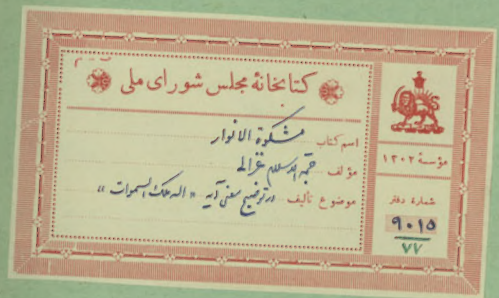 کتابخانهٔ مجلس شورای ملی
اسم کتاب مشکوة الانوار
مؤلف حجة الاسلام غزالی
موضوع تألیف در توضیح معنی آیه «الله ملک السموات»
مؤسسهٔ ۱۳۰۲
شمارهٔ دفتر
۹۰۱۵
۷۷